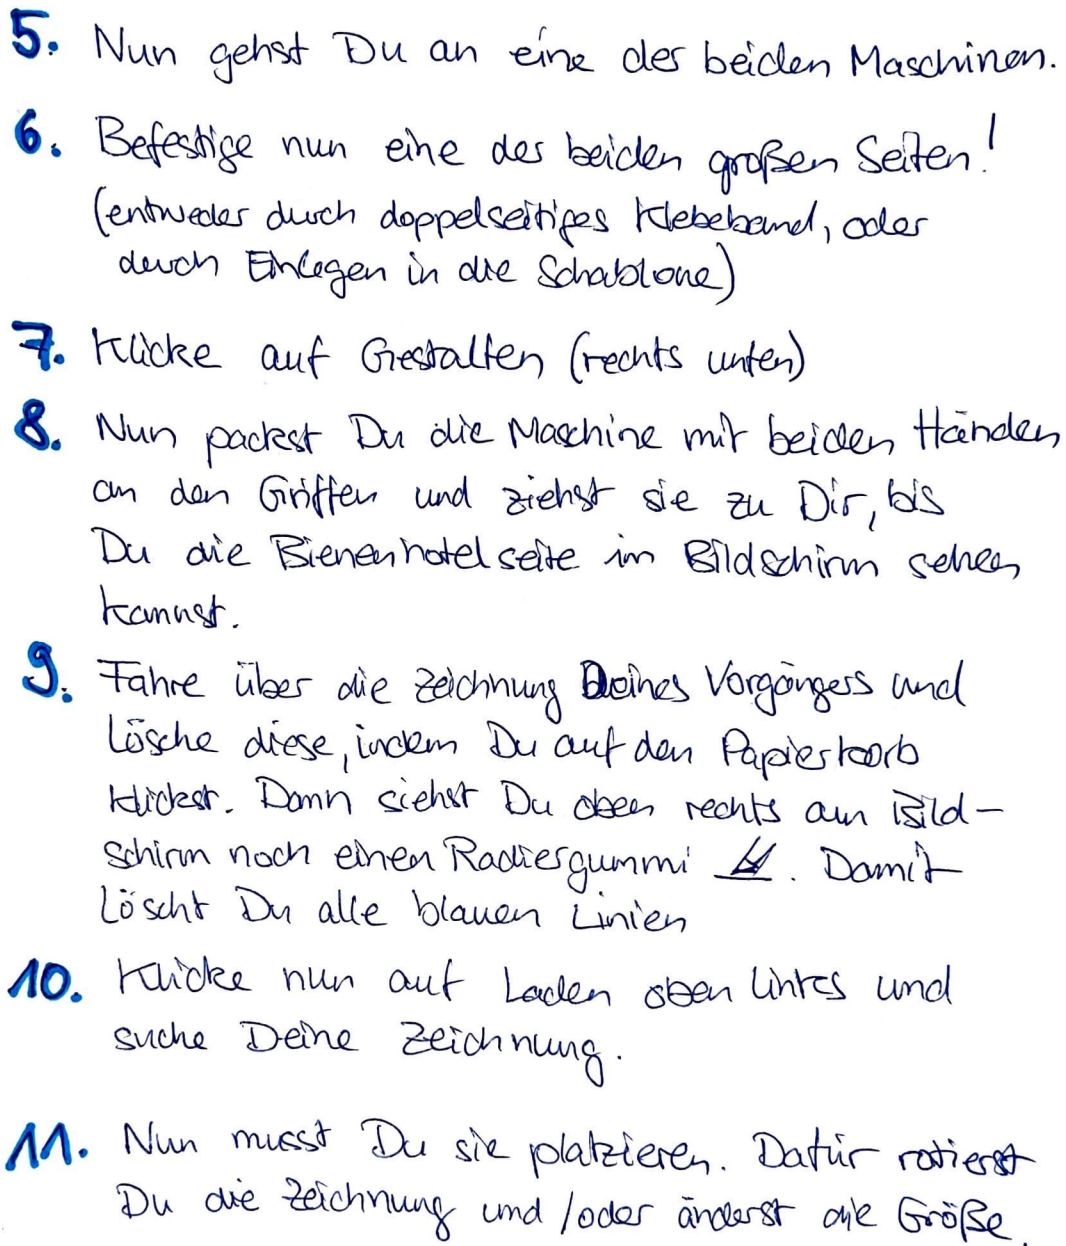 5. Nun gehst Du an eine der beiden Maschinen.
6. Befestige nun eine der beiden großen Seiten!
(entweder durch doppelseitiges Klebeband, oder
durch Einlegen in die Schablone)
7. Klicke auf Gestalten (rechts unten)
8. Nun packst Du die Maschine mit beiden Händen
an den Griffen und ziehst sie zu Dir, bis
Du die Bienenhotelseite im Bildschirm sehen
kannst.
9. Fahre über die Zeichnung Deines Vorgängers und
lösche diese, indem Du auf den Papierkorb
klickst. Dann siehst Du oben rechts am Bild-
schirm noch einen Radiergummi. Damit
löscht Du alle blauen Linien
10. Klicke nun auf Laden oben links und
suche Deine Zeichnung.
11. Nun musst Du sie platzieren. Dafür rotierst
Du die Zeichnung und/oder änderst die Größe.